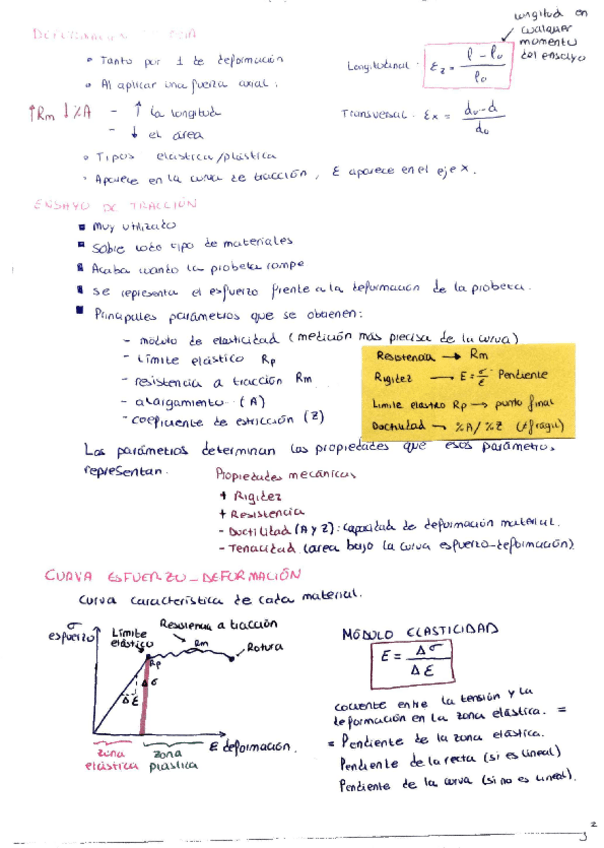 longitud en
cualquier
momento
del ensayo
DEFORMACIÓN
• Tanto por 1 de deformación
Longitudinal: εz = (l - l₀) / l₀
• Al aplicar una fuerza axial:
↑Rm ↓%A
- ↑ la longitud
- ↓ el área
Transversal: εx = (d₀ - d) / d₀
• Tipos elástica/plástica
• Aparece en la curva de tracción, ε aparece en el eje x.
ENSAYO DE TRACCIÓN
▪ Muy utilizado
▪ Sobre todo tipo de materiales
▪ Acaba cuando la probeta rompe
▪ Se representa el esfuerzo frente a la deformación de la probeta.
▪ Principales parámetros que se obtienen:
- módulo de elasticidad (medición más precisa de la curva)
- límite elástico Rp
- resistencia a tracción Rm
- alargamiento (A)
- coeficiente de estricción (Z)
Resistencia → Rm
Rigidez → E = σ/ε Pendiente
Límite elástico Rp → punto final
Ductilidad → %A/%Z (≠frágil)
Los parámetros determinan las propiedades que esos parámetros
representan.
Propiedades mecánicas
+ Rigidez
+ Resistencia
- Ductilidad (A y Z): capacidad de deformación material.
- Tenacidad (area bajo la curva esfuerzo-deformación).
CURVA ESFUERZO-DEFORMACIÓN
Curva característica de cada material.
σ
esfuerzo
Límite
elástico
Resistencia a tracción
Rm
Rotura
Rp
Δσ
Δε
ε deformación.
zona
elástica
zona
plástica
MÓDULO ELASTICIDAD
E = Δσ / Δε
cociente entre la tensión y la
deformación en la zona elástica. =
= Pendiente de la zona elástica.
Pendiente de la recta (si es lineal)
Pendiente de la curva (si no es lineal).
2